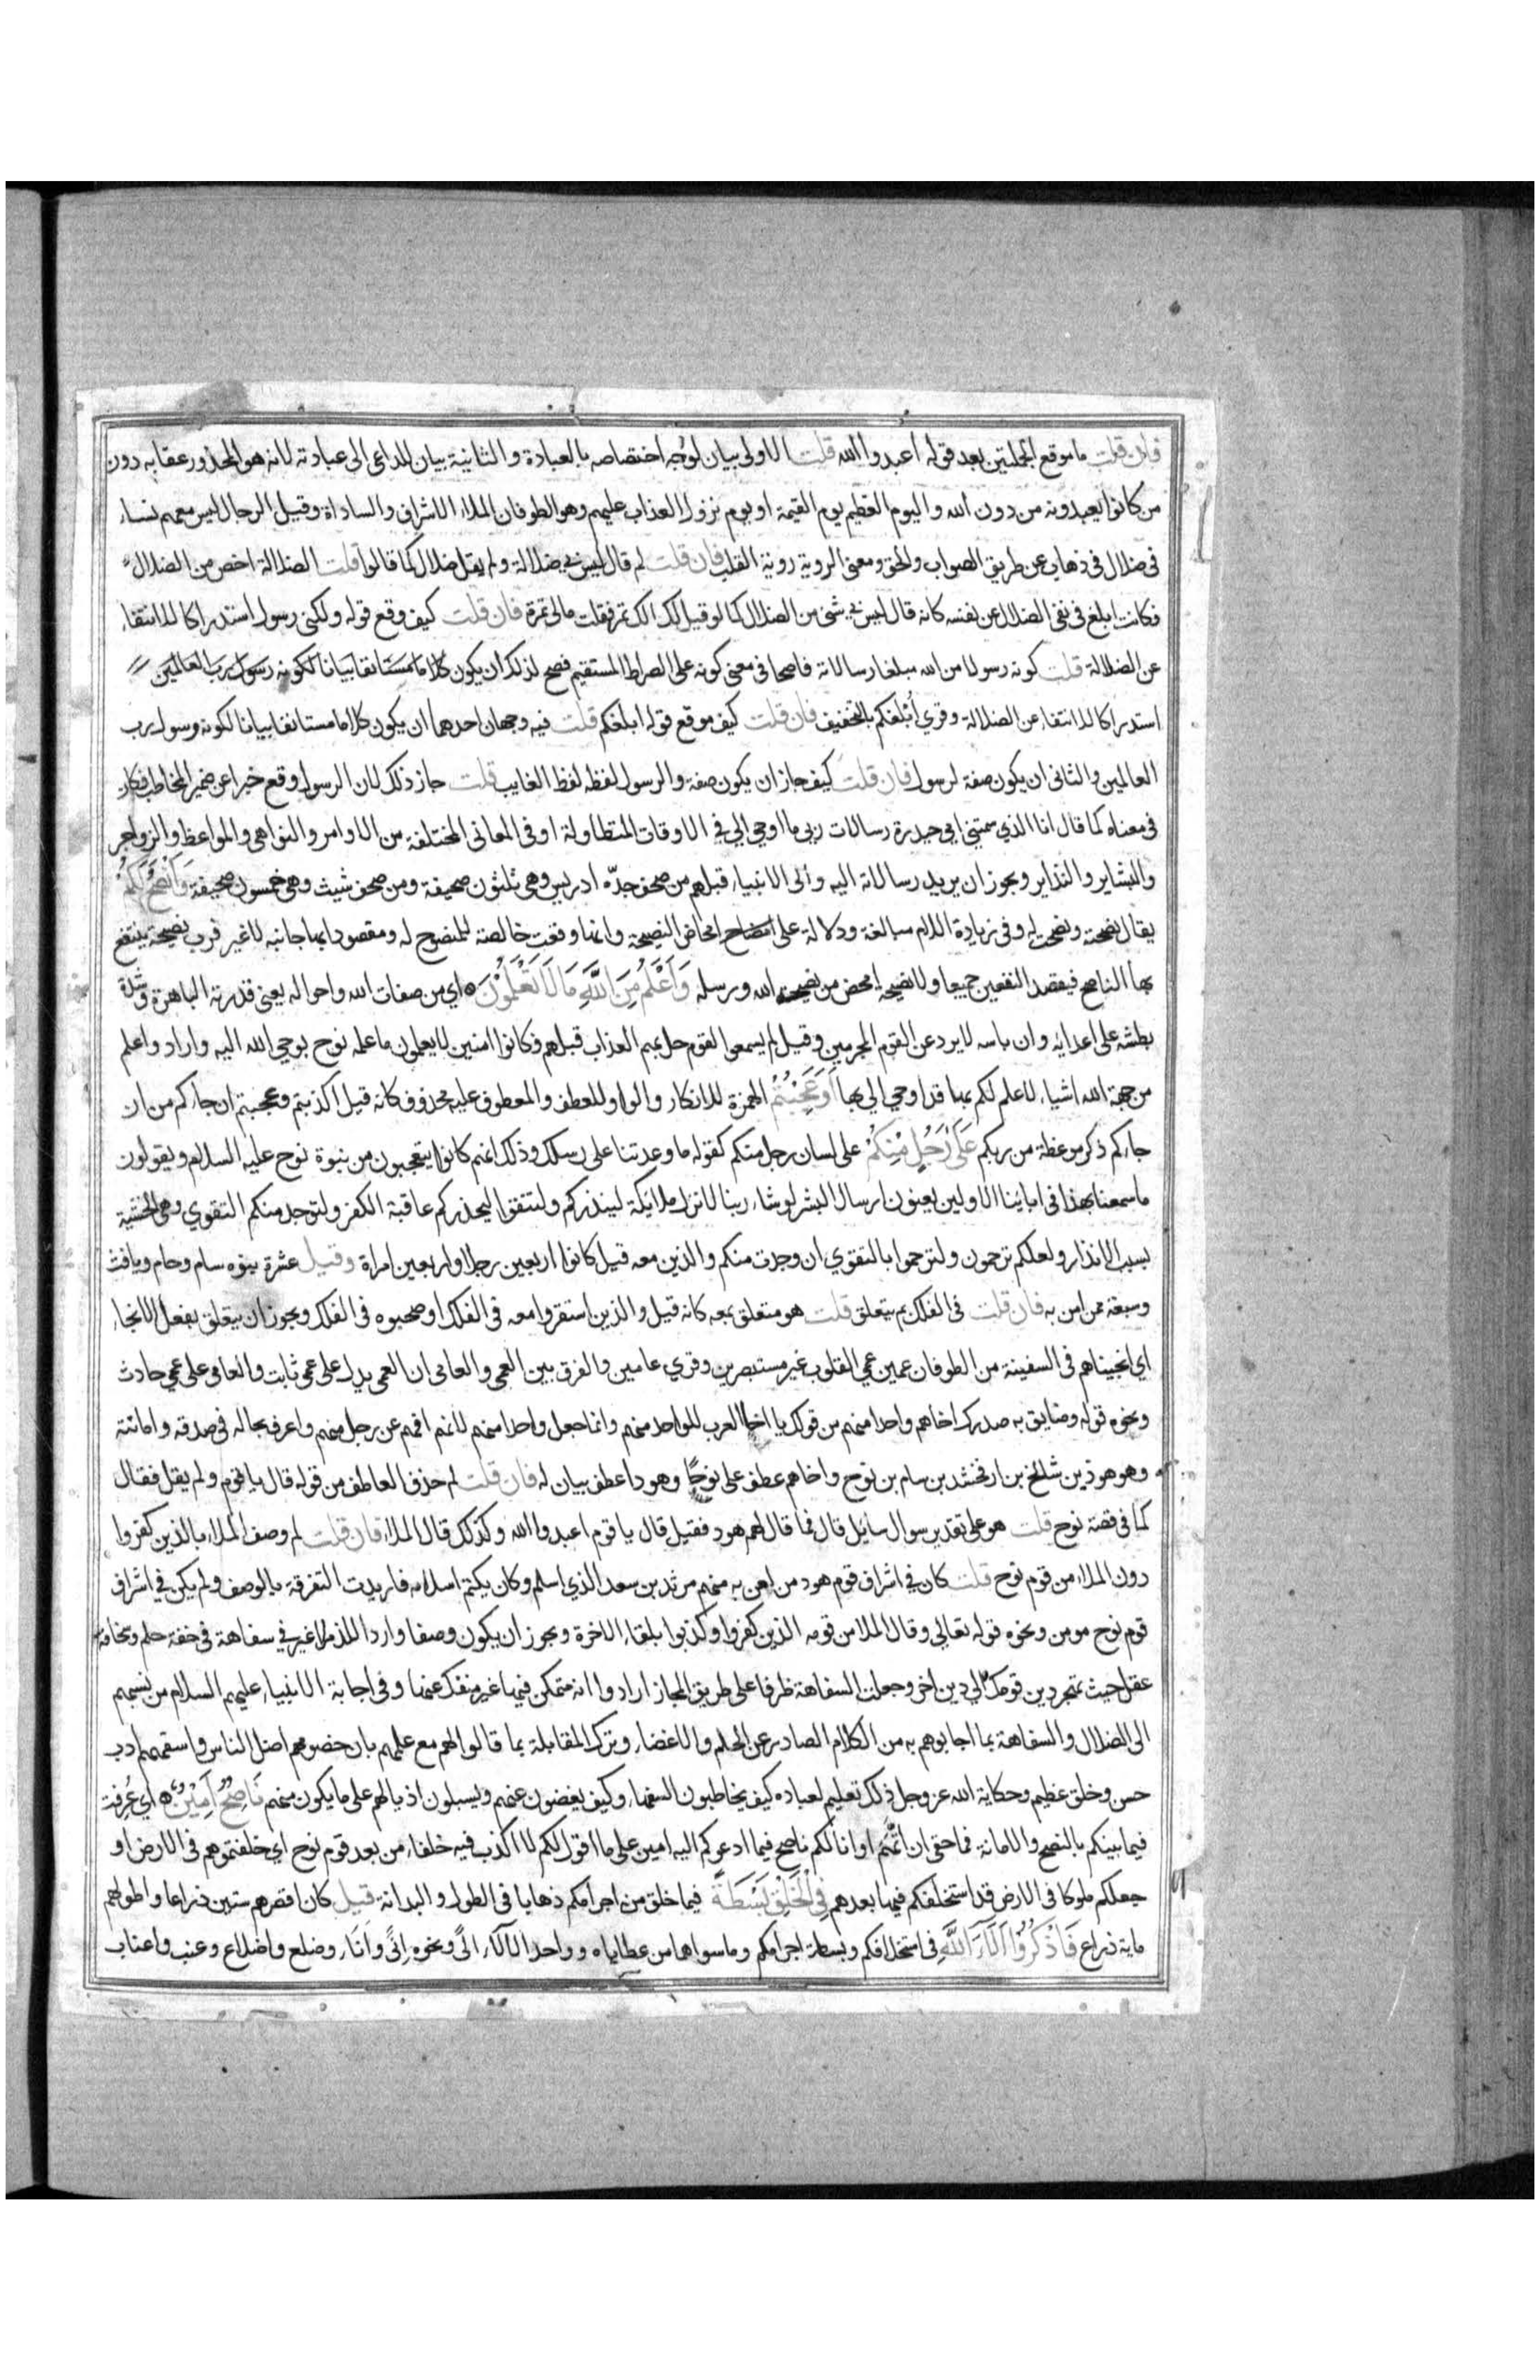 فان قلت ما موقع الجملتين بعد قوله اعبدوا الله قلت الاولى بيان لوجه اختصاصه بالعبادة والثانية بيان للداعى الى عبادته لانه هو المحذور عقابه دون
من كانوا يعبدونه من دون الله واليوم العظيم يوم القيمة او يوم نزول العذاب عليهم وهو الطوفان الملاء الاشراف والساداة وقيل الرجال ليس معهم نساء
فى ضلال فى ذهاب عن طريق الصواب والحق ومعنى الروية روية القلب فان قلت لم قال ليس بي ضلالة ولم يقل ضلال كما قالوا قلت الضلالة اخص من الضلال
فكانت ابلغ فى نفى الضلال عن نفسه كانه قال ليس بي شئ من الضلال كما لو قيل لك الك تمر فقلت مالى تمرة فان قلت كيف وقع قوله ولكنى رسول استدراكا للانتفاء
عن الضلالة قلت كونه رسولا من الله مبلغا رسالاته ناصحا فى معنى كونه على الصراط المستقيم فصح لذلك ان يكون كلاما مستانفا بيانا لكونه رسول رب العالمين
استدراكا للانتفاء عن الضلالة وقري أُبْلغكم بالتخفيف فان قلت كيف موقع قوله ابلغكم قلت فيه وجهان احدهما ان يكون كلاما مستانفا بيانا لكونه رسول رب
العالمين والثانى ان يكون صفة لرسول فان قلت كيف جاز ان يكون صفة والرسول لفظه لفظ الغايب قلت جاز ذلك لان الرسول وقع خبرا عن ضمير المخاطب فكان
فى معناه كما قال انا الذي سمتني امي حيدرة رسالات ربى ما اوحي الي في الاوقات المتطاولة او فى المعانى المختلفة من الاوامر والنواهى والمواعظ والزواجر
والبشاير والنذاير ويجوز ان يريد رسالاته اليه والى الانبياء قبلهم من صحف جدّه ادريس وهى ثلثون صحيفة ومن صحف شيث وهى خمسون صحيفة وَاَنْصَحُ لَكُمْ
يقال نصحته ونصحت له وفى زيادة اللام مبالغة ودلالة على امحاض النصيحة وانها وقعت خالصة للمنصوح له ومقصودا بها جانبه لا غير فرب نصيحة ينتفع
بها الناصح فيقصد النفعين جميعا ولا نصيحة امحض من نصيحة الله ورسله وَاَعْلَمُ مِنَ اللَّهِ مَا لَا تَعْلَمُوْنَ ه اي من صفات الله واحواله يعنى قدرته الباهرة وشدة
بطشه على اعدايه وان باسه لا يرد عن القوم المجرمين وقيل لم يسمعوا بقوم حل بهم العذاب قبلهم فكانوا امنين لا يعلمون ما علمه نوح بوحي الله اليه واراد واعلم
من جهة الله اشياء لا علم لكم بها قد اوحي الي بها اَوَعَجِبْتُمْ الهمزة للانكار والواو للعطف والمعطوف عليه محذوف كانه قيل اكذبتم وعجبتم ان جاءكم من ان
جاءكم ذكر موعظة من ربكم عَلَى رَجُلٍ مِنْكُمْ على لسان رجل منكم كقوله ما وعدتنا على رسلك وذلك انهم كانوا يتعجبون من نبوة نوح عليه السلام ويقولون
ما سمعنا بهذا فى ابائنا الاولين يعنون ارسال البشر لو شاء ربنا لانزل ملائكة لينذركم ولتتقوا ليحذركم عاقبة الكفر ولتوجد منكم التقوي وهى الخشية
بسبب الانذار ولعلكم ترحمون ولترحموا بالتقوي ان وجدت منكم والذين معه قيل كانوا اربعين رجلا واربعين امراة وقيل عشرة بنوه سام وحام ويافث
وسبعة ممن امن به فان قلت فى الفلك بم يتعلق قلت هو متعلق بمعه كانه قيل والذين استقروا معه فى الفلك او صحبوه فى الفلك ويجوز ان يتعلق بفعل الانجاء
اي انجيناهم فى السفينة من الطوفان عمين عمي القلوب غير مستبصرين وقري عامين والفرق بين العمى والعامى ان العمى يدل على عمى ثابت والعامى على عمي حادث
ونحوه قوله وضايق به صدرك اخاهم واحدا منهم من قولك يا اخا العرب للواحد منهم وانما جعل واحدا منهم لانهم افهم عن رجل منهم واعرف بحاله فى صدقه وامانته
وهو هود بن شالخ بن ارفخشد بن سام بن نوح واخاهم عطف على نوحًا وهودا عطف بيان له فان قلت لم حذف العاطف من قوله قال يا قوم ولم يقل فقال
كما فى قصة نوح قلت هو على تقدير سوال سايل قال فما قال لهم هود فقيل قال يا قوم اعبدوا الله وكذلك قال الملاء فان قلت لم وصف الملاء بالذين كفروا
دون الملاء من قوم نوح قلت كان في اشراف قوم هود من امن به منهم مرثد بن سعد الذي اسلم وكان يكتم اسلامه فاريدت التفرقة بالوصف ولم يكن في اشراف
قوم نوح مومن ونحوه قوله تعالى وقال الملا من قومه الذين كفروا وكذبوا بلقاء الاخرة ويجوز ان يكون وصفا واردا للذم لا غير في سفاهة فى خفة حلم وسخافة
عقل حيث تهجر دين قومك الي دين اخر وجعلت السفاهة ظرفا على طريق المجاز ارادوا انه متمكن فيها غير منفك عنها وفى اجابة الانبياء عليهم السلام من نسبهم
الى الضلال والسفاهة بما اجابوهم به من الكلام الصادر عن الحلم والاغضاء وترك المقابلة بما قالوا لهم مع علمهم بان خصومهم اضل الناس واسفههم ادب
حسن وخلق عظيم وحكاية الله عز وجل ذلك تعليم لعباده كيف يخاطبون السفهاء وكيف يغضون عنهم ويسبلون اذيالهم على ما يكون منهم نَاصِحٌ اَمِيْنٌ ه اي عُرفت
فيما بينكم بالنصح والامانة فما حقى ان اتّهَم او انا لكم ناصح فيما ادعوكم اليه امين على ما اقول لكم لا اكذب فيه خلفاء من بعد قوم نوح اي خلفتموهم فى الارض او
جعلكم ملوكا فى الارض قد استخلفكم فيها بعدهم فِى الْخَلْقِ بَسْطَةً فيما خلق من اجرامكم ذهابا فى الطول والبدانة قيل كان اقصرهم ستين ذراعا واطولهم
ماية ذراع فَاذْكُرُوْا آلَاءَ اللَّهِ فى استخلافكم وبسطة اجرامكم وما سواهما من عطاياه وواحد الالآء الًى ونحوه انًى وانَاء وضلع واضلاع وعنب واعناب